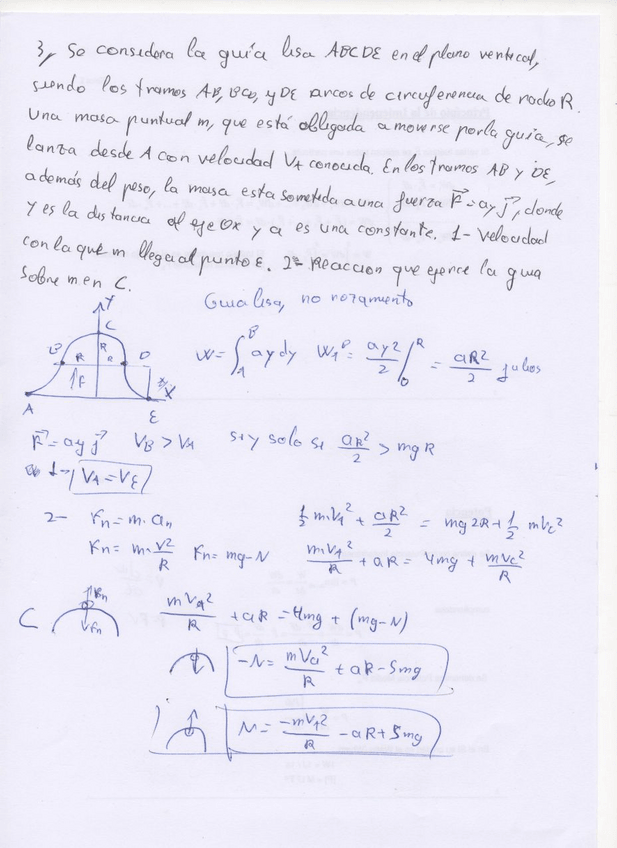 3, Se considera la guía lisa ABCDE en el plano vertical,
siendo los tramos AB, BCD, y DE arcos de circuferencia de radio R.
Una masa puntual m, que está obligada a moverse por la guia, se
lanza desde A con velocidad VA conocida. En los tramos AB y DE,
además del peso, la masa esta sometida a una fuerza F⃗=ayj⃗, donde
y es la distancia al eje Ox y a es una constante. 1- Velocidad
con la que m llega al punto E. 2- Reaccion que ejerce la guia
sobre m en C.
Guia lisa, no rozamiento
Y
C
B R R D
↑F
X
A E
W = ∫_A^B ay dy = ay²/2 |_0^R = aR²/2 julios
F⃗=ayj⃗ VB > VA si y solo si aR²/2 > mgR
1- VA = VE
2- Fn = m·an ½ mVA² + aR²/2 = mg2R + ½ mVC²
Fn = m·V²/R Fn = mg-N mVA²/R + aR = 4mg + mVC²/R
C Fn mVA²/R + aR = 4mg + (mg-N)
-N = mVA²/R + aR - 5mg
N = -mVA²/R - aR + 5mg